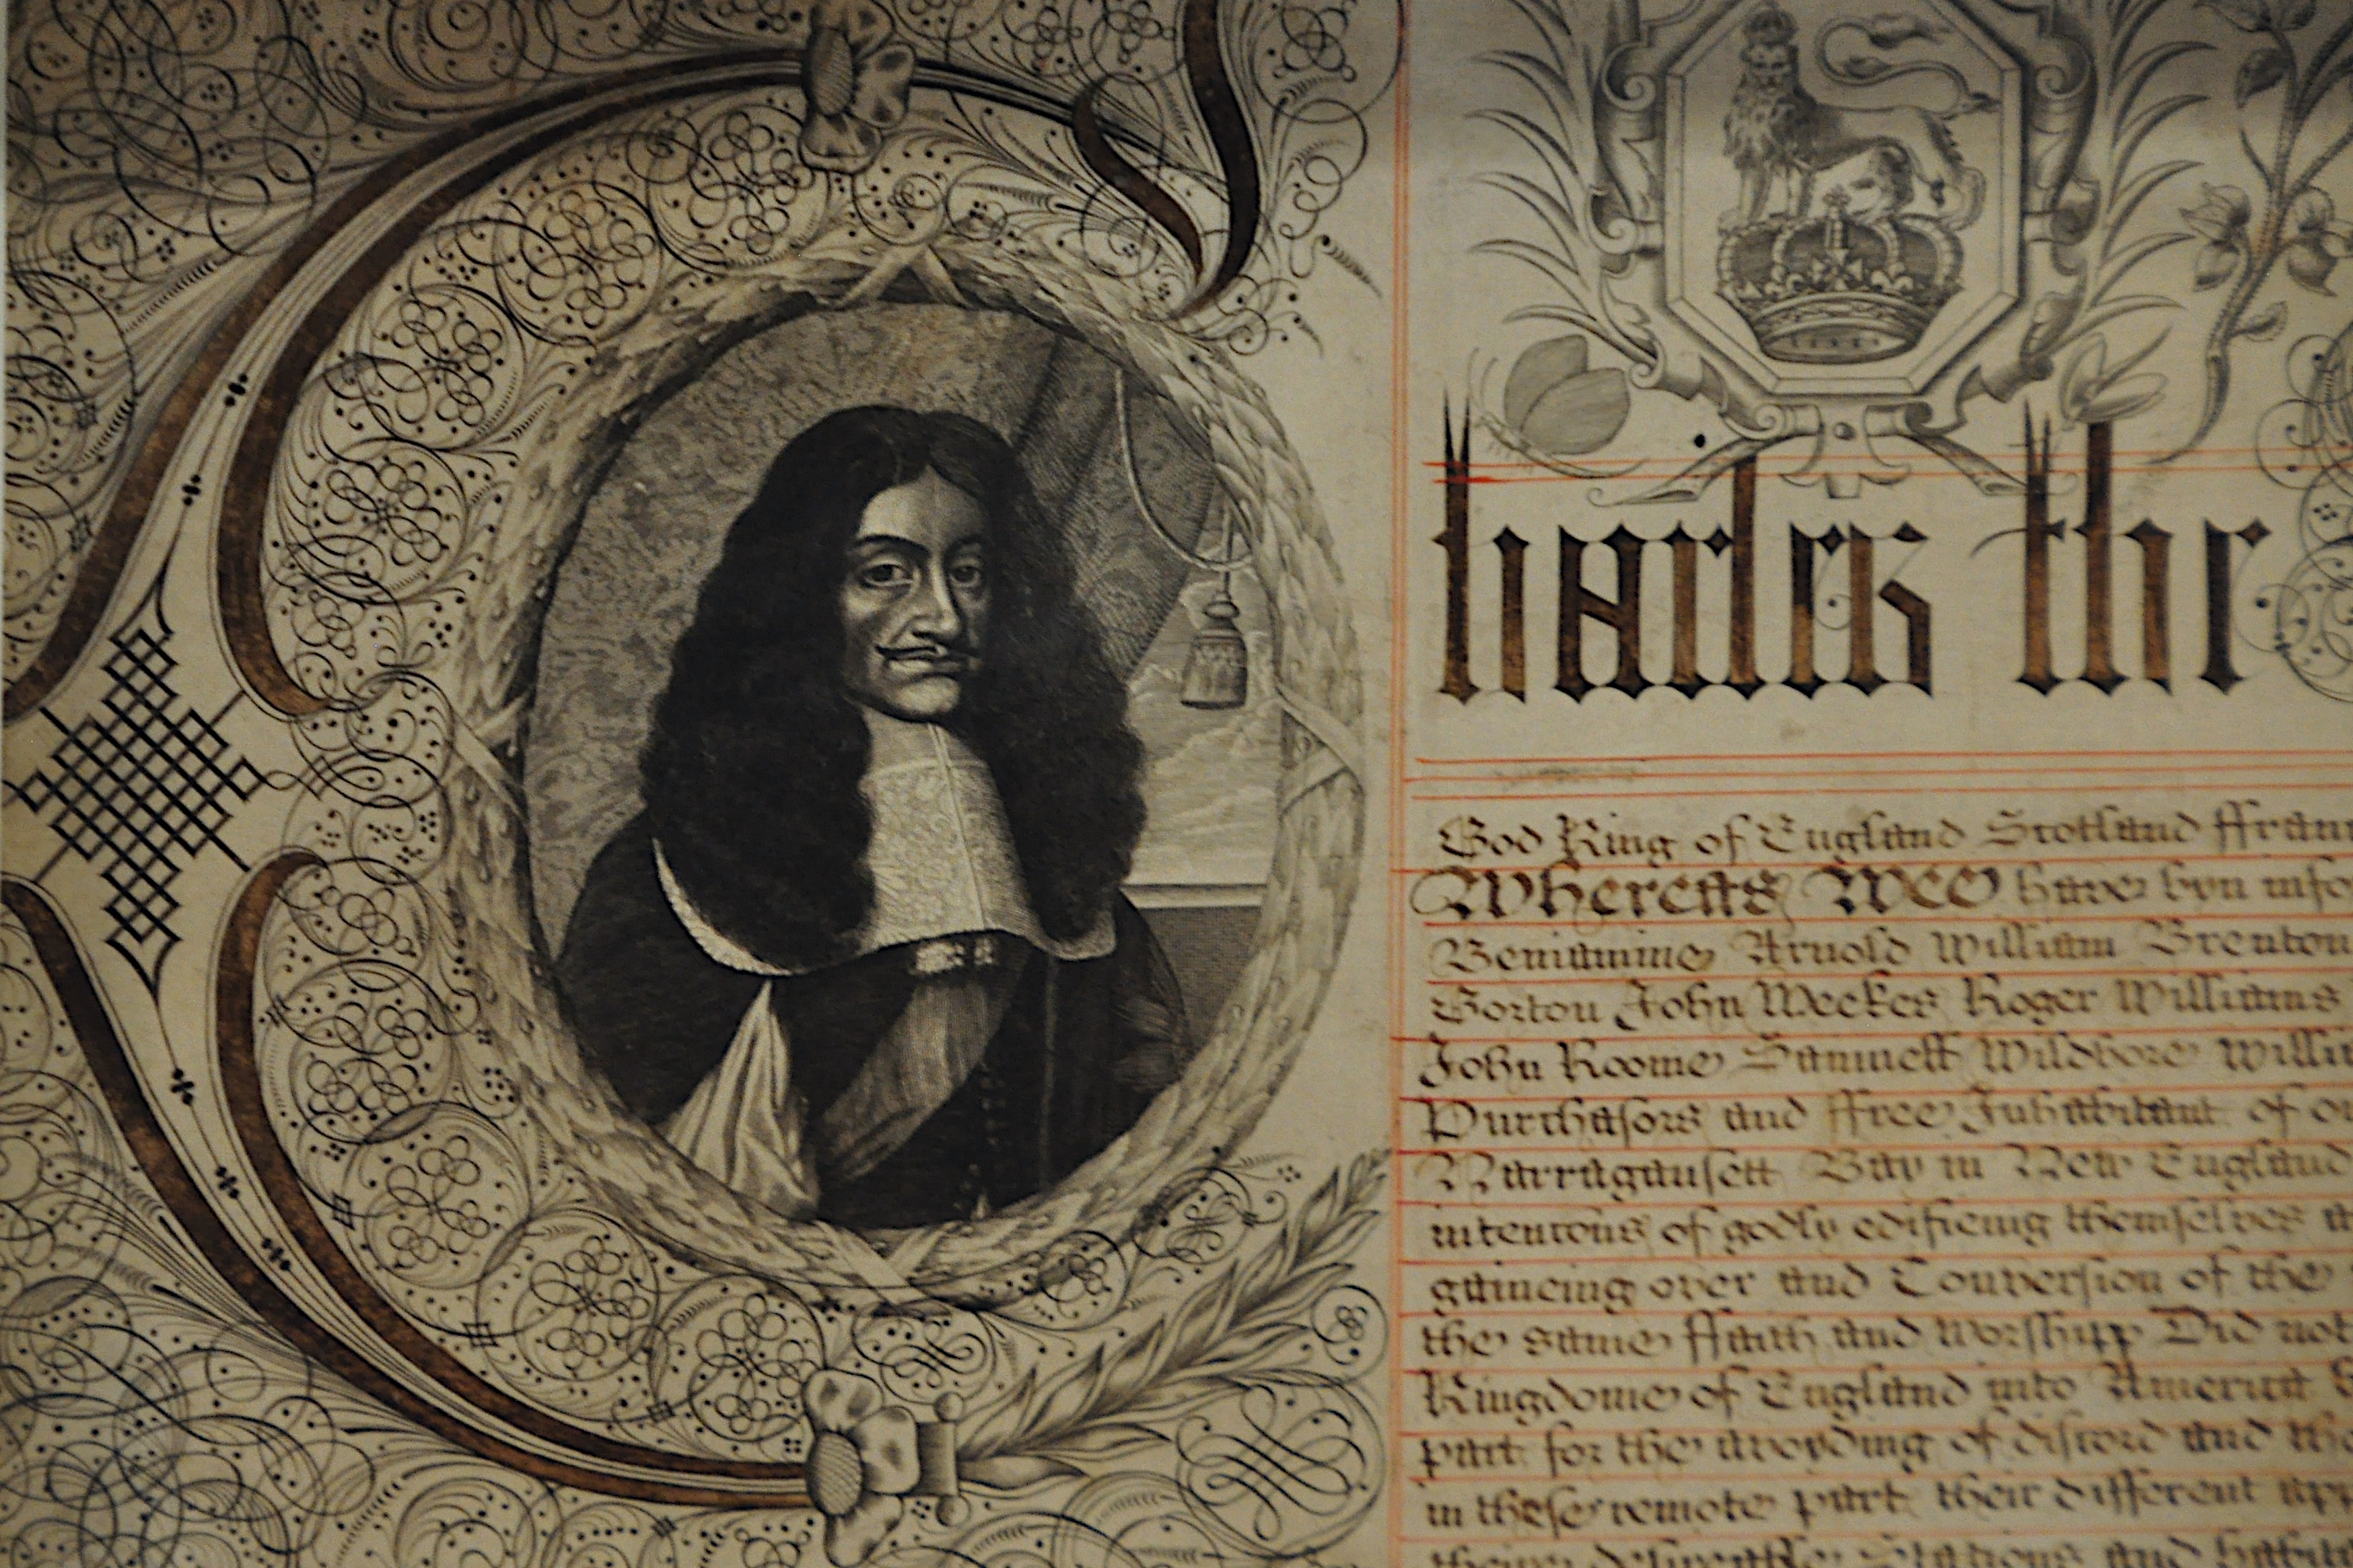 Charles the
God King of England Scotland ffran
Whereas Wee have byn info
Beniamine Arnold William Brenton
Gorton John Weekes Roger Williams
John Roome Samuell Wildbore Willi
Purchasors and ffree Inhabitant of o
Narragansett Bay in New England
intentons of godly edifieing themselves a
gaineing over and Conversion of the
the same ffaith and worshipp Did not
Kingdome of England into America b
part for the avoyding of discord and the
in these remote part their different app
their desireable Stations and habit